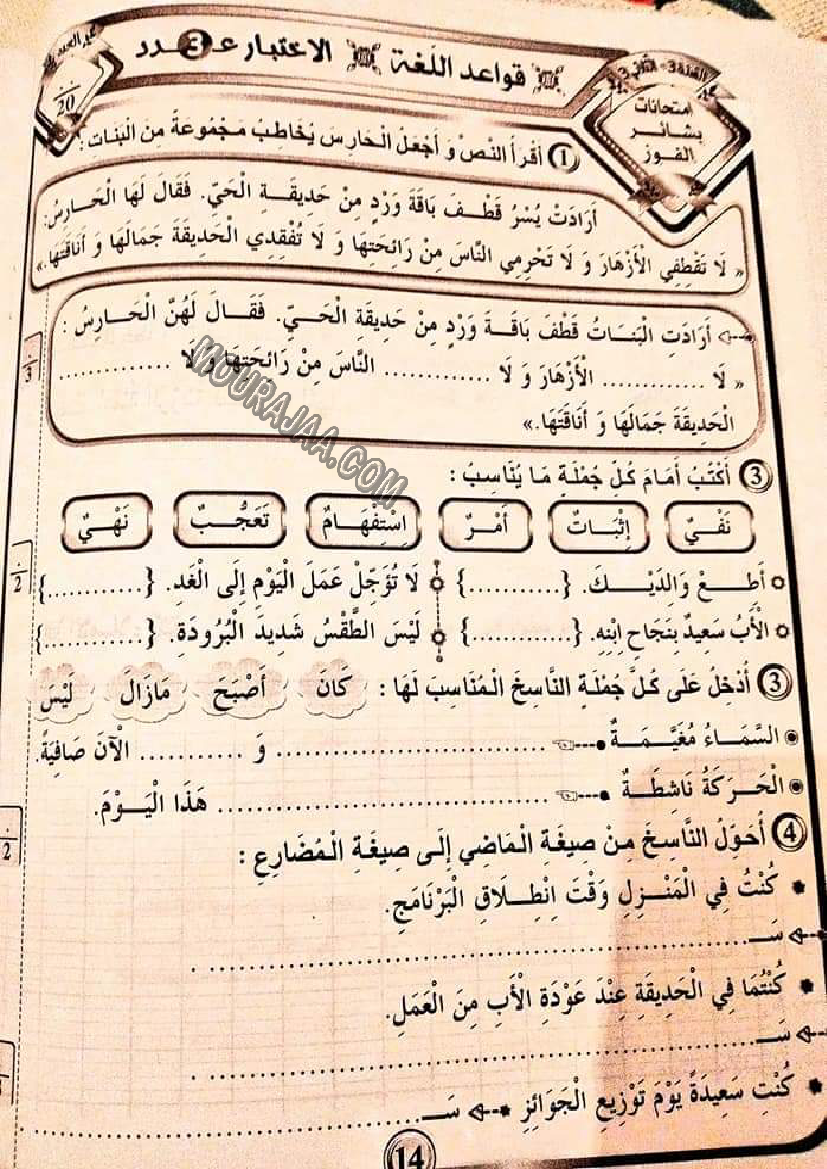 قواعد اللغة الاختبار عدد 3
20
امتحانات
بشائر
الفوز
1 أَقْرَأُ النَّصَّ وَ أَجْعَلُ الْحَارِسَ يُخَاطِبُ مَجْمُوعَةً مِنَ الْبَنَاتِ :
أَرَادَتْ يُسْرُ قَطْفَ بَاقَةَ وَرْدٍ مِنْ حَدِيقَـــةِ الْحَيِّ. فَقَالَ لَهَا الْحَـــارِسُ:
« لَا تَقْطِفِي الْأَزْهَارَ وَ لَا تَحْرِمِي النَّاسَ مِنْ رَائِحَتِهَا وَ لَا تُفْقِدِي الْحَدِيقَةَ جَمَالَهَا وَ أَنَاقَتَهَا.»
أَرَادَتِ الْبَنَـــاتُ قَطْفَ بَاقَـــةَ وَرْدٍ مِنْ حَدِيقَةِ الْحَـــيِّ. فَقَـــالَ لَهُنَّ الْحَـــارِسُ :
« لَا ............ الْأَزْهَارَ وَ لَا ............. النَّاسَ مِنْ رَائِحَتِهَا وَ لَا .............
الْحَدِيقَةَ جَمَالَهَا وَ أَنَاقَتَهَا.»
MOURAJAA.COM
3 أَكْتُبُ أَمَامَ كُلِّ جُمْلَةٍ مَا يُنَاسِبُ :
نَفْـــيٌ إِثْبَـــاتٌ أَمْـــرٌ اِسْتِفْهَـــامٌ تَعَجُّـــبٌ نَهْـــيٌ
أَطِـــعْ وَالِدَيْـــكَ. {...........} لَا تُؤَجِّلْ عَمَلَ الْيَوْمِ إِلَى الْغَدِ. {............}
الْأَبُ سَعِيدٌ بِنَجَاحِ اِبْنِهِ. {............} لَيْسَ الطَّقْسُ شَدِيدَ الْبُرُودَةِ. {............}
3 أُدْخِلُ عَلَى كُلِّ جُمْلَةٍ النَّاسِخَ الْمُنَاسِبَ لَهَا : كَانَ أَصْبَحَ مَازَالَ لَيْسَ
السَّمَـــاءُ مُغَيِّمَـــةٌ .................................. وَ ........... الْآنَ صَافِيَةً.
الْحَـــرَكَةُ نَاشِطَـــةٌ .......................................... هَذَا الْيَـــوْمَ.
4 أُحَوِّلُ النَّاسِخَ مِنْ صِيغَةِ الْمَاضِي إِلَى صِيغَةِ الْمُضَارِعِ :
كُنْتُ فِي الْمَنْـــزِلِ وَقْتَ اِنْطِـــلَاقِ الْبَرْنَامَجِ.
سَـــ.................................................................. .
كُنْتُمَا فِي الْحَدِيقَةِ عِنْدَ عَوْدَةِ الْأَبِ مِنَ الْعَمَلِ.
سَـــ.................................................................. .
كُنْتِ سَعِيدَةً يَوْمَ تَوْزِيعِ الْجَوَائِزِ سَـــ...........................................
14